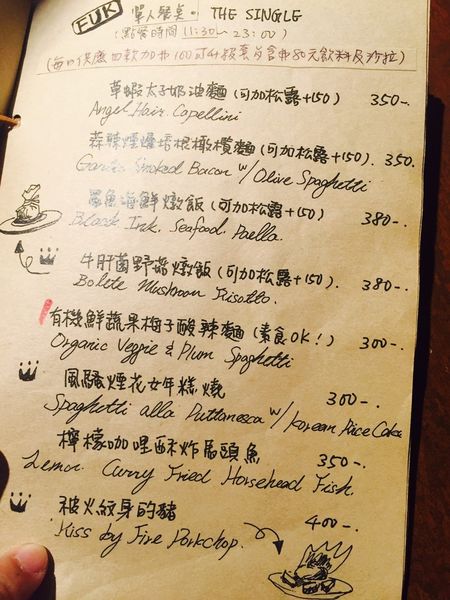 FUK 單人餐桌。 THE SINGLE
(點餐時間 11:30~23:00)
草蝦太子奶油麵(可加松露+150) 350-.
Angel Hair Capellini
蒜辣煙燻培根橄欖麵(可加松露+150). 350.
Garlic Smoked Bacon w/ Olive Spaghetti
墨魚海鮮燉飯(可加松露+150) 380-.
Black Ink Seafood Paella.
牛肝菌野菇燉飯(可加松露+150). 380-.
Bolete Mushroom Risotto.
有機鮮蔬果梅子酸辣麵(素食OK!) 300-.
Organic Veggie & Plum Spaghetti
風騷煙花女年糕燒 300-.
Spaghetti alla Puttanesca w/ Korean Rice Cake
檸檬咖哩酥炸馬頭魚 350-.
Lemon Curry Fried Horsehead Fish.
被火紋身的豬 400-.
Kiss by Fire Porkchop.